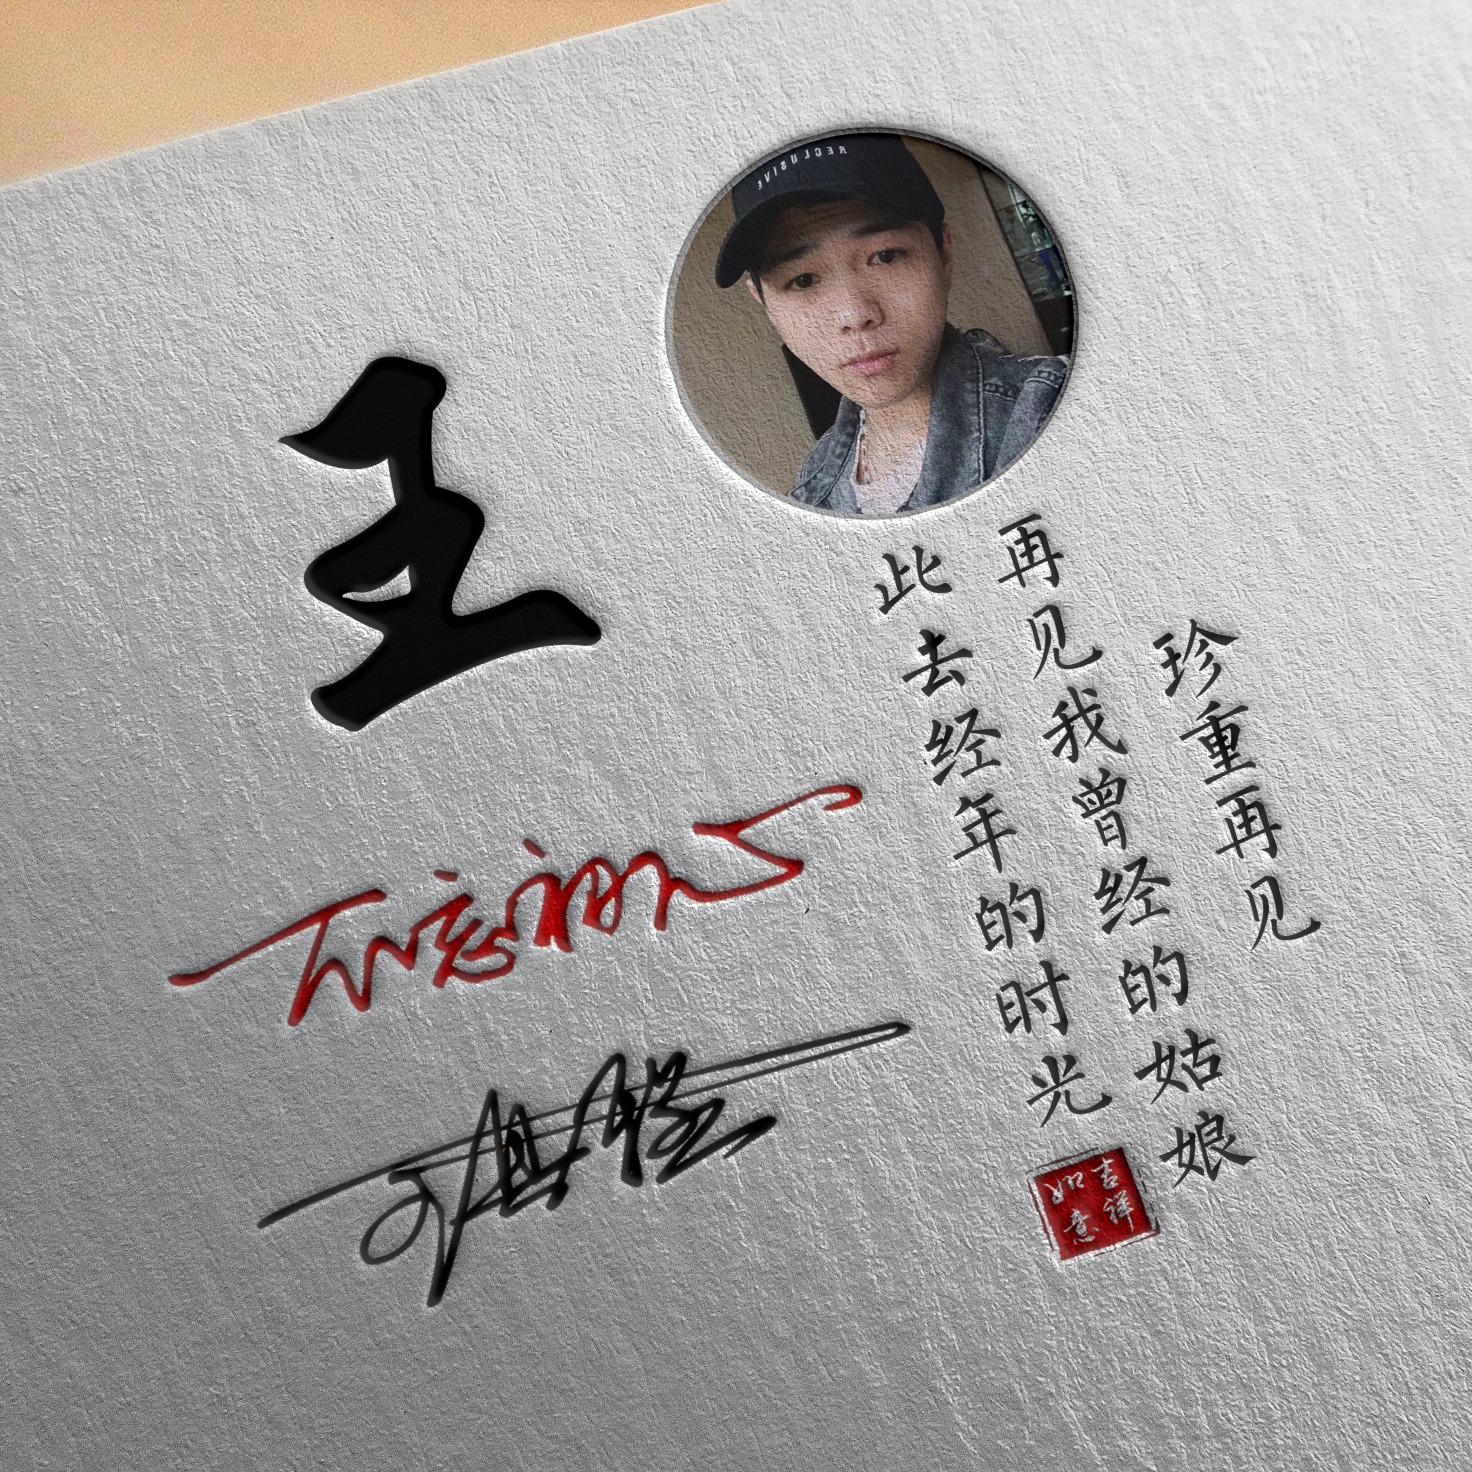 RECLUSIVE
王
不忘初心
此去经年的时光
再见我曾经的姑娘
珍重再见
吉祥
如意